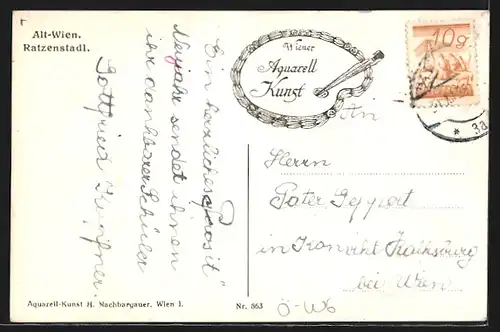 Alt-Wien.
Ratzenstadl.
Wiener
Aquarell
Kunst
10g
3a
Ein herzliches „Prosit"
Neujahr sendet ihnen
ihr dankbarer Schüler
Gottfried
An
Herrn
Pater Geppert
in Konvikt Kalksburg
bei Wien
Ö-W6
Aquarell-Kunst H. Nachbargauer. Wien I.
Nr. 863